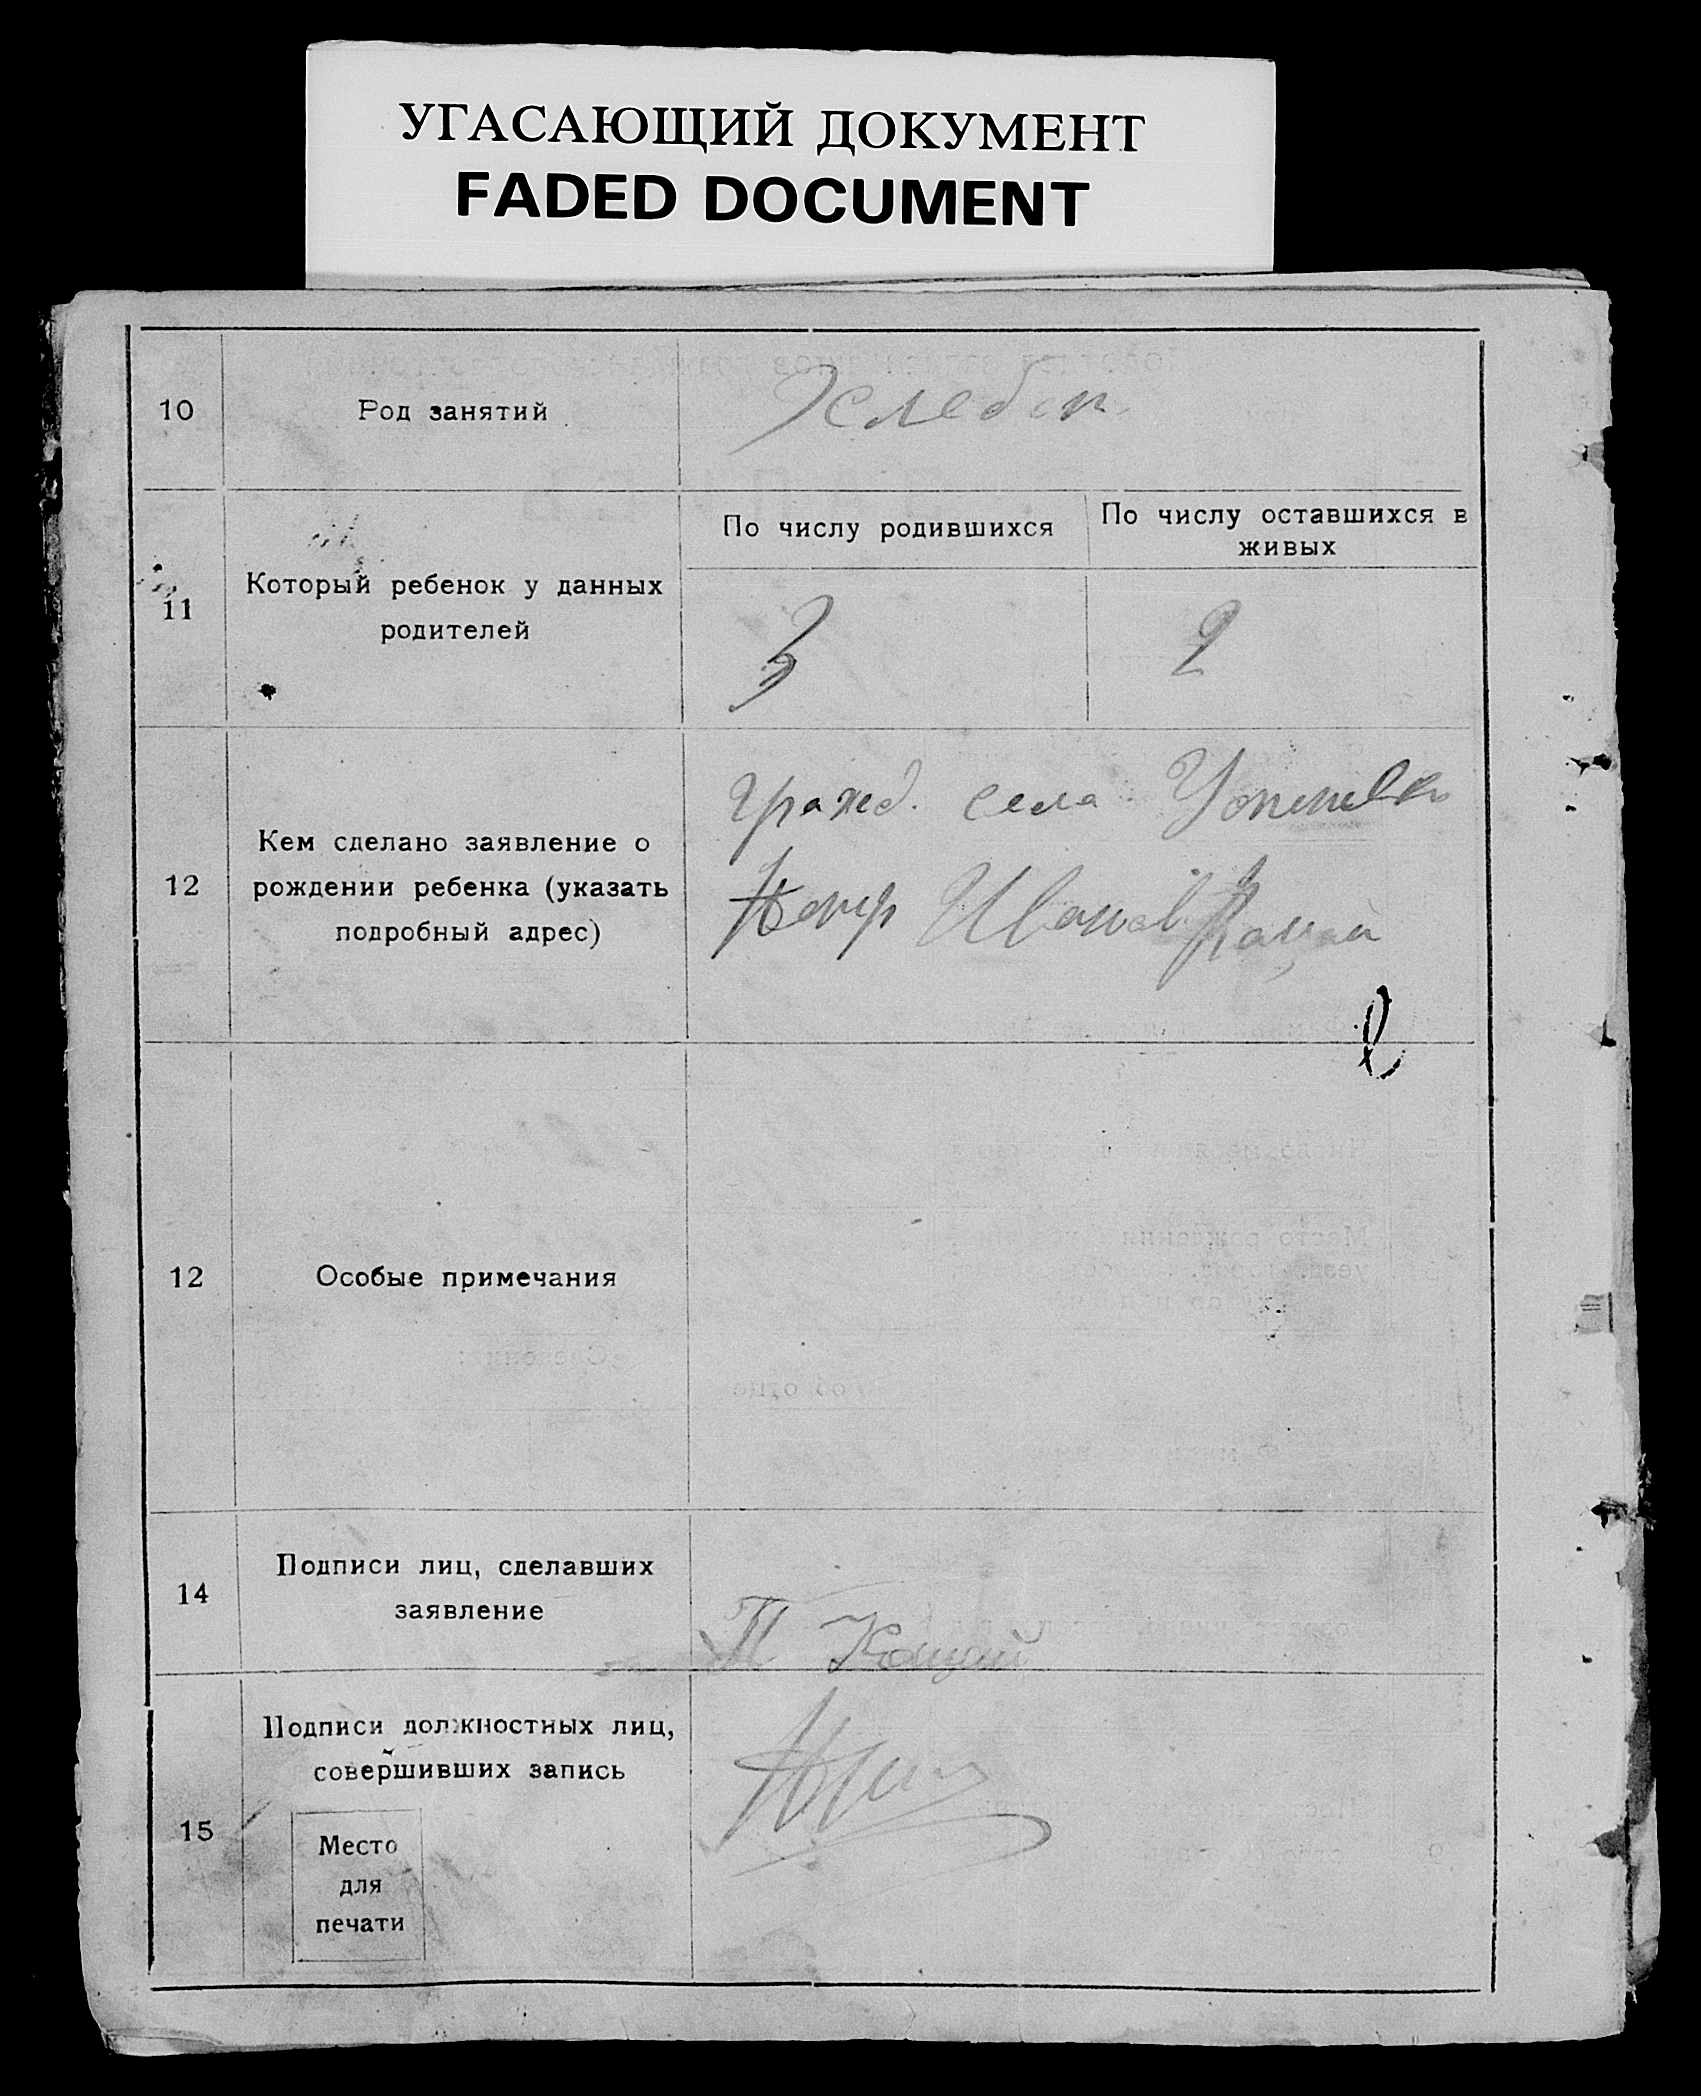 УГАСАЮЩИЙ ДОКУМЕНТ
FADED DOCUMENT
10
Род занятий
11
Который ребенок у данных
родителей
По числу родившихся
По числу оставшихся в
живых
3
2
12
Кем сделано заявление о
рождении ребенка (указать
подробный адрес)
гражд. села
Петр Иванов
12
Особые примечания
14
Подписи лиц, сделавших
заявление
П Коцай
15
Подписи должностных лиц,
совершивших запись
Место
для
печати